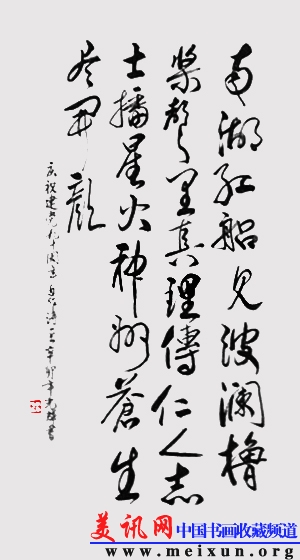 南湖红船见波澜橹
桨声里真理傳仁人志
士播星火神州蒼生
尽开颜
庆祝建党九十周年
辛卯年
書
美讯网 中国书画收藏频道
www.meixun.org